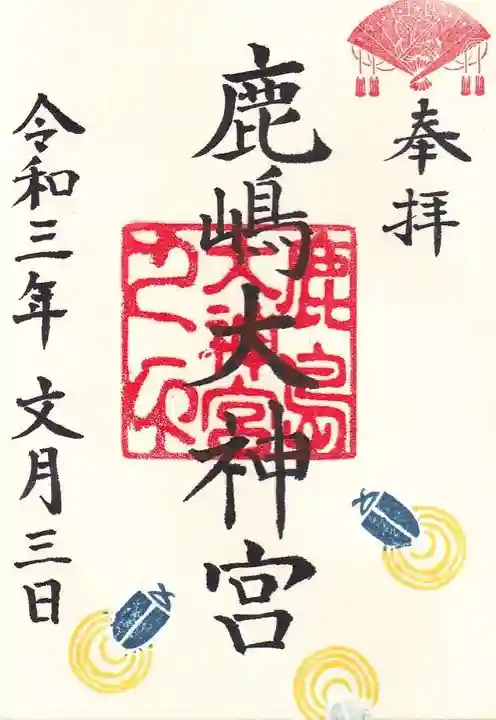 奉拝
鹿嶋大神宮
鹿島
大神宮
之印
令和三年 文月三日